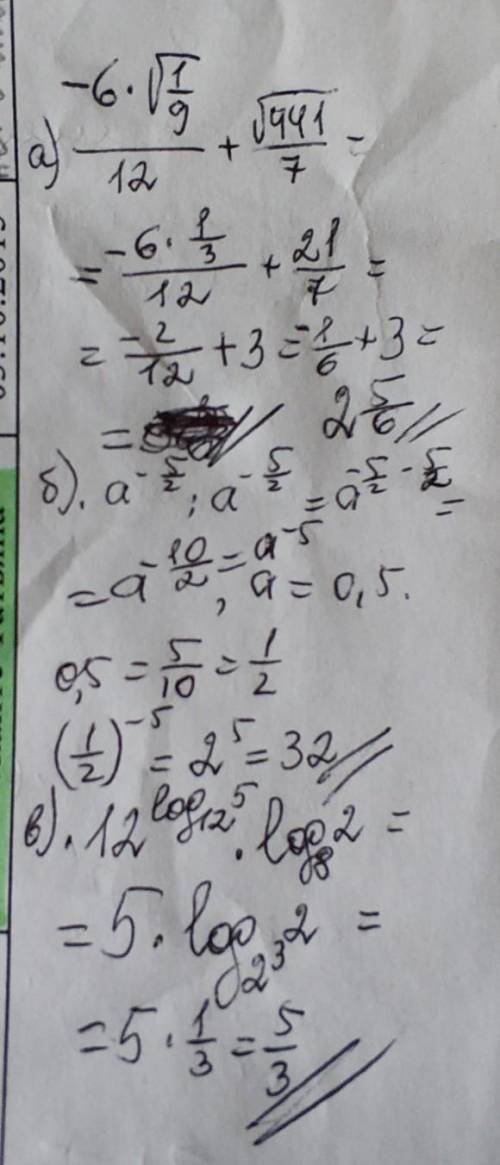 а) (-6·√(1/9))/12 + √441/7 =
= (-6·1/3)/12 + 21/7 =
= -2/12 + 3 = -1/6 + 3 =
= 2 5/6//
б). a^(-5/2) : a^(-5/2) = a^(-5/2 - 5/2) =
= a^(-10/2) = a^(-5), a = 0,5.
0,5 = 5/10 = 1/2
(1/2)^(-5) = 2^5 = 32//
в). 12^(log₁₂5) · log₈2 =
= 5 · log_(2^3) 2 =
= 5 · 1/3 = 5/3//